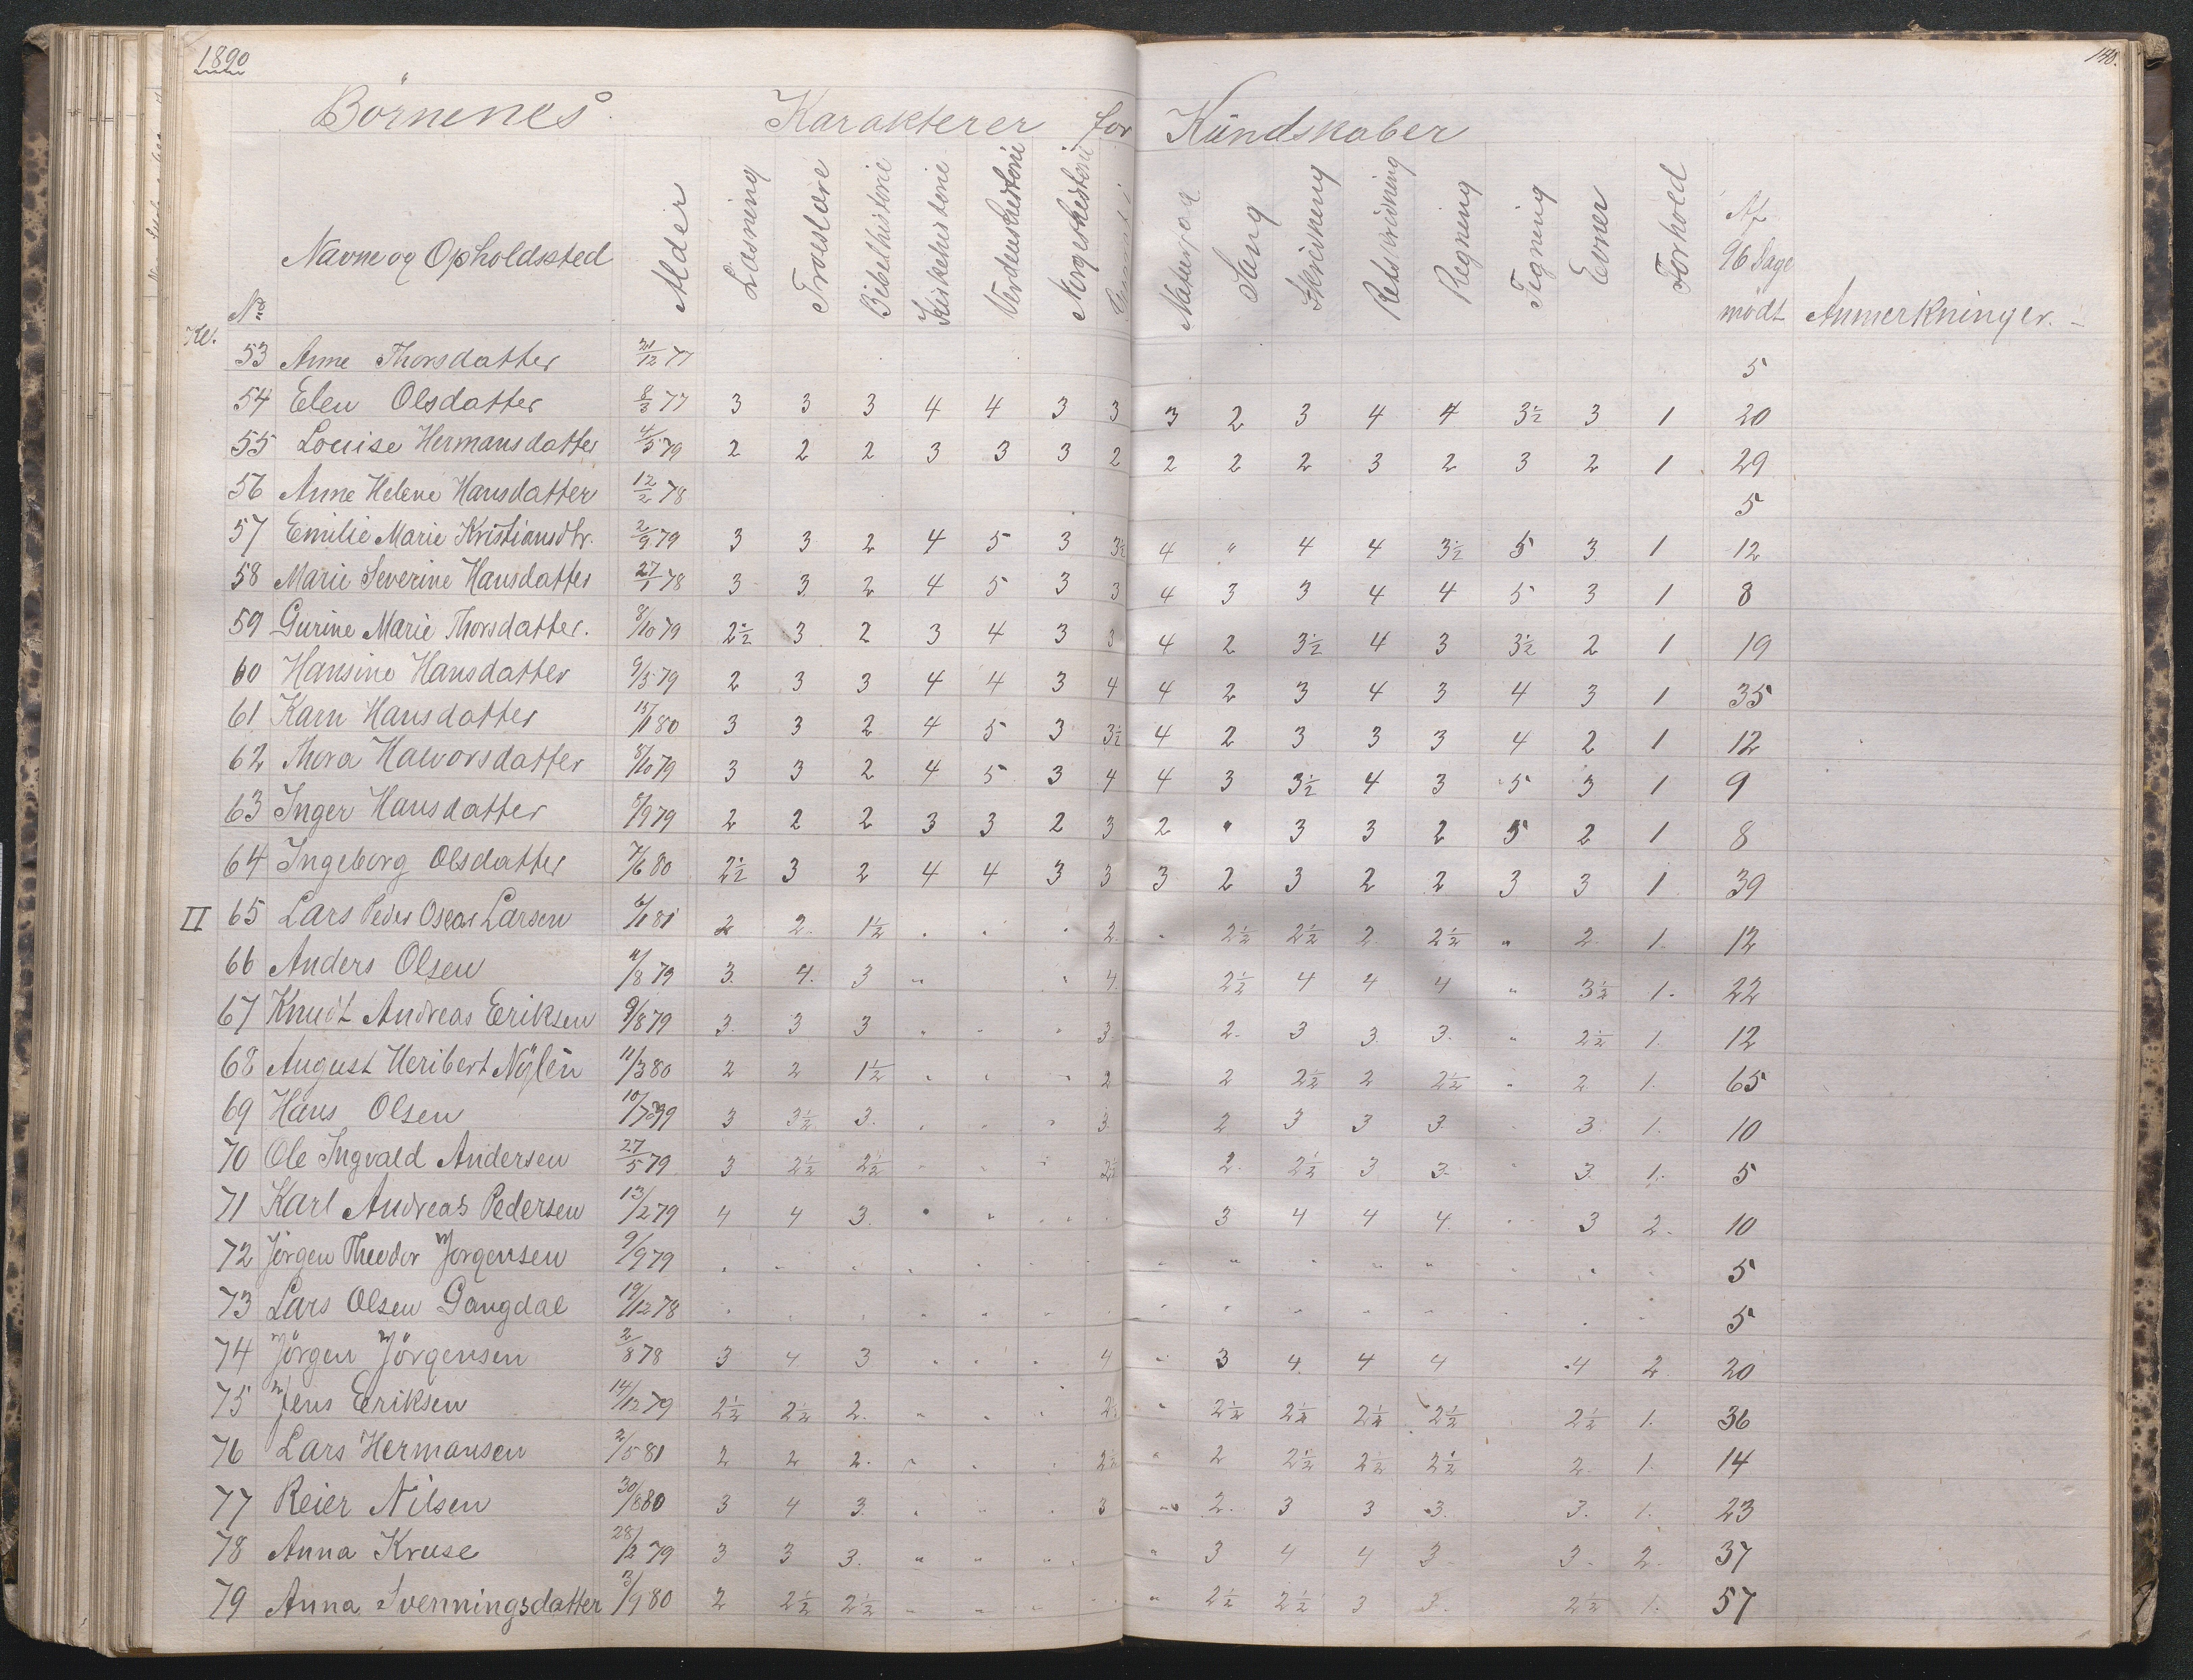 1890
140.
Börnenes Karakterer for Kundskaber
Kl. No Navne og Opholdssted Alder Læsning Troeslære Bibelhistorie Kirkehistorie Verdenshistorie Norgeshistorie Sang Skrivning Retskrivning Regning Tegning Evner Forhold Af 96 Dage mödt Anmerkninger.
53 Anne Thorsdatter 31/12 77 5
54 Elen Olsdatter 8/3 77 3 3 3 4 4 3 3 3 2 3 4 4 3½ 3 1 20
55 Louise Hermansdatter 4/5 79 2 2 2 3 3 3 2 2 2 2 3 2 3 2 1 29
56 Anne Helene Hansdatter 12/2 78 5
57 Emilie Marie Kristiansdtr. 2/9 79 3 3 2 4 5 3 3½ 4 " 4 4 3½ 5 3 1 12
58 Marie Severine Hansdatter 27/1 78 3 3 2 4 5 3 3 4 3 3 4 4 5 3 1 8
59 Gurine Marie Thorsdatter. 8/10 79 2½ 3 2 3 4 3 3 4 2 3½ 4 3 3½ 2 1 19
60 Hansine Hansdatter 9/3 79 2 3 3 4 4 3 4 4 2 3 4 3 4 3 1 35
61 Karn Hansdatter 15/1 80 3 3 2 4 5 3 3½ 4 2 3 3 3 4 2 1 12
62 Thora Halvorsdatter 8/10 79 3 3 2 4 5 3 4 4 3 3½ 4 3 5 3 1 9
63 Inger Hansdatter /9 79 2 2 2 3 3 2 3 2 " 3 3 2 5 2 1 8
64 Ingeborg Olsdatter 7/6 80 2½ 3 2 4 4 3 3 3 2 3 2 2 3 3 1 39
II 65 Lars Peder Oscar Larsen 6/1 81 2 2. 1½ . . . 2. " 2½ 2½ 2. 2½ " 2. 1. 12
66 Anders Olsen /8 79 3. 4. 3 " " 4. 2½ 4 4 4 " 3½ 1. 22
67 Knudt Andreas Eriksen 9/8 79 3. 3 3 " " " 3 2. 3 3. 3. " 2½ 1. 12
68 August Heribert Nylén 11/3 80 2 2 1½ " " " 2 2 2½ 2 2½ " 2 1. 65
69 Hans Olsen 10/7 79 3 3½ 3. . " " 3. 2 3 3 3 3. 1. 10
70 Ole Ingvald Andersen 27/5 79 3 2½ 2½ " " " 2½ 2. 2½ 3 3. 3. 1. 5
71 Karl Andreas Pedersen 13/2 79 4 4 3. " " " 3 4 4 4. 3 2. 10
72 Jörgen Theodor Jörgensen 9/9 79 5
73 Lars Olsen Gangdal 19/12 78 5
74 Jörgen Jörgensen 2/8 78 3 4 3 . . . 4 " 3 4. 4 4 4 2 20
75 Jens Eriksen 14/12 79 2½ 2½ 2. " " " 2½ " 2½ 2½ 2½ 2½ 2½ 1. 36
76 Lars Hermansen 2/5 81 2 2 2. " . . 2½ " 2 2½ 2½ 2½ 2. 1. 14
77 Reier Nilsen 30/8 80 3 4 3. " " . 3 " 2. 3 3 3. 3. 1. 23
78 Anna Kruse 28/2 79 3 3 3. " " " " 3 4 4 3 3. 2. 37
79 Anna Svenningsdatter 3/9 80 2 2½ 2½ " " " " 2½ 2½ 3 3. 2½ 1. 57